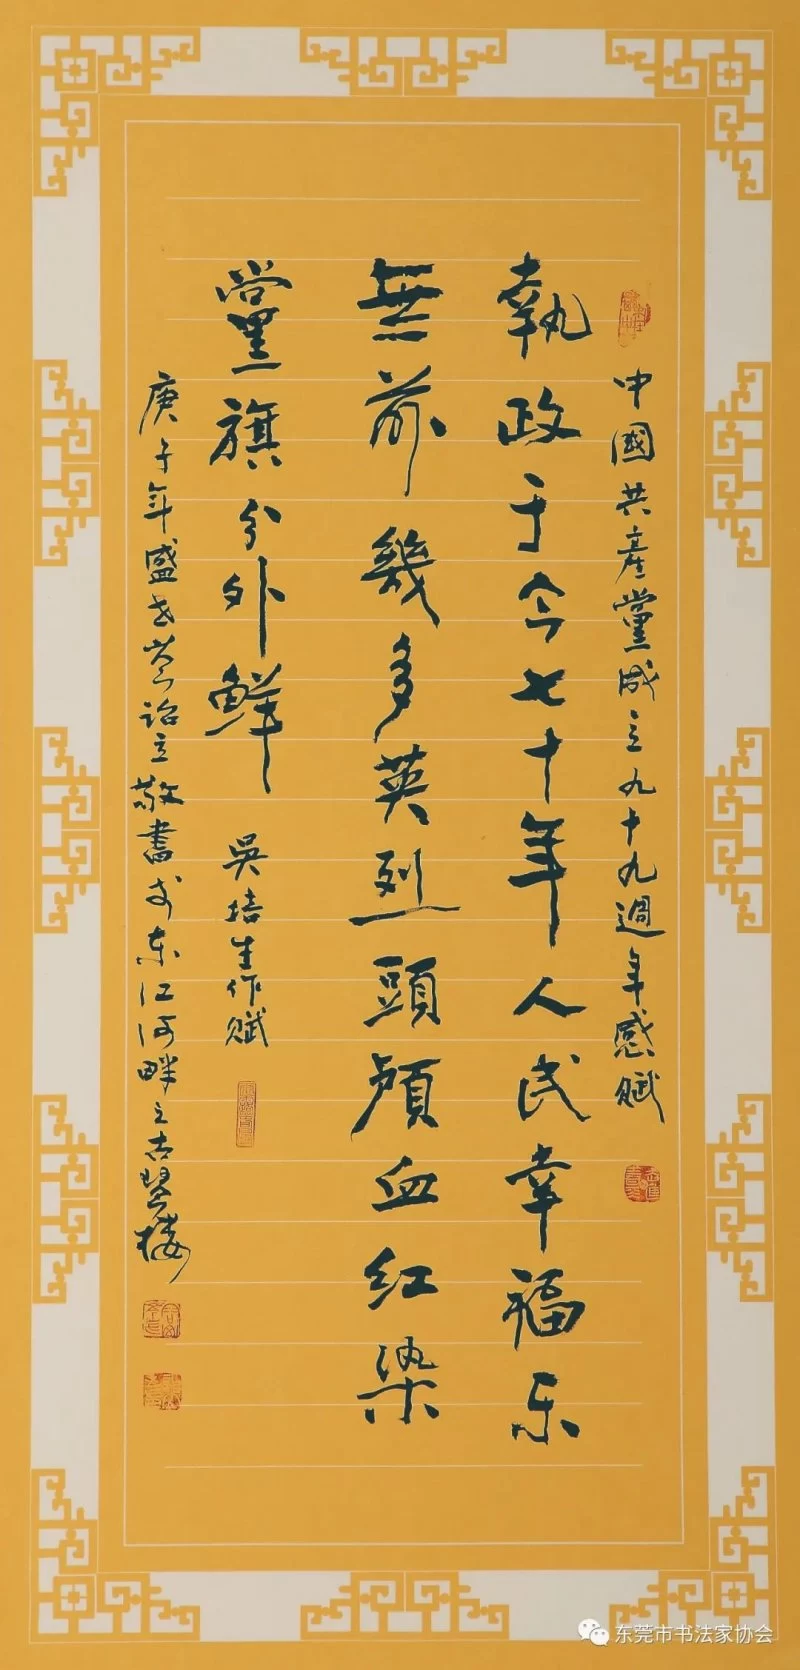 中國共產黨成立九十九週年感賦
執政于今七十年人民幸福乐
無前幾多英烈頭顱血红染
黨旗分外鮮
吳培生作賦
庚子年盛世詒立敬書于东江河畔之古賢楼
东莞市书法家协会